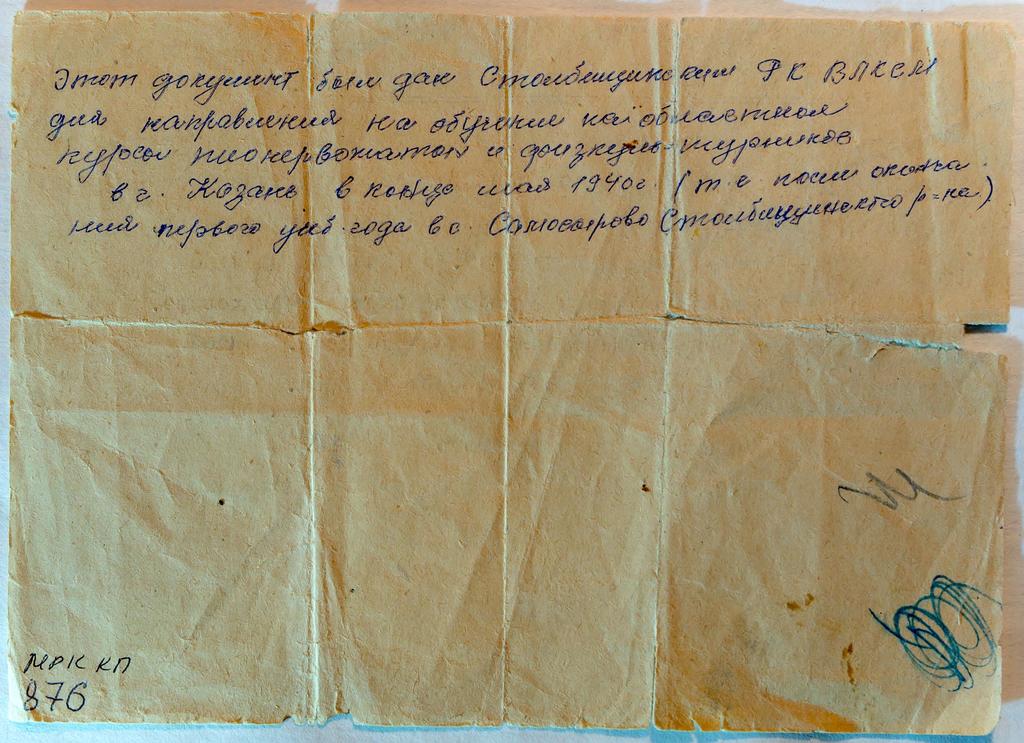 Этот документ был дан Столбищинским РК ВЛКСМ
для направления на обучение на областном
курсы пионервожатых и физкультурников
в г. Казань в конце мая 1940 г. (т.е. после оконча
ния первого учеб. года в с. Самосырово Столбищинского р=на)
МРК КП
876